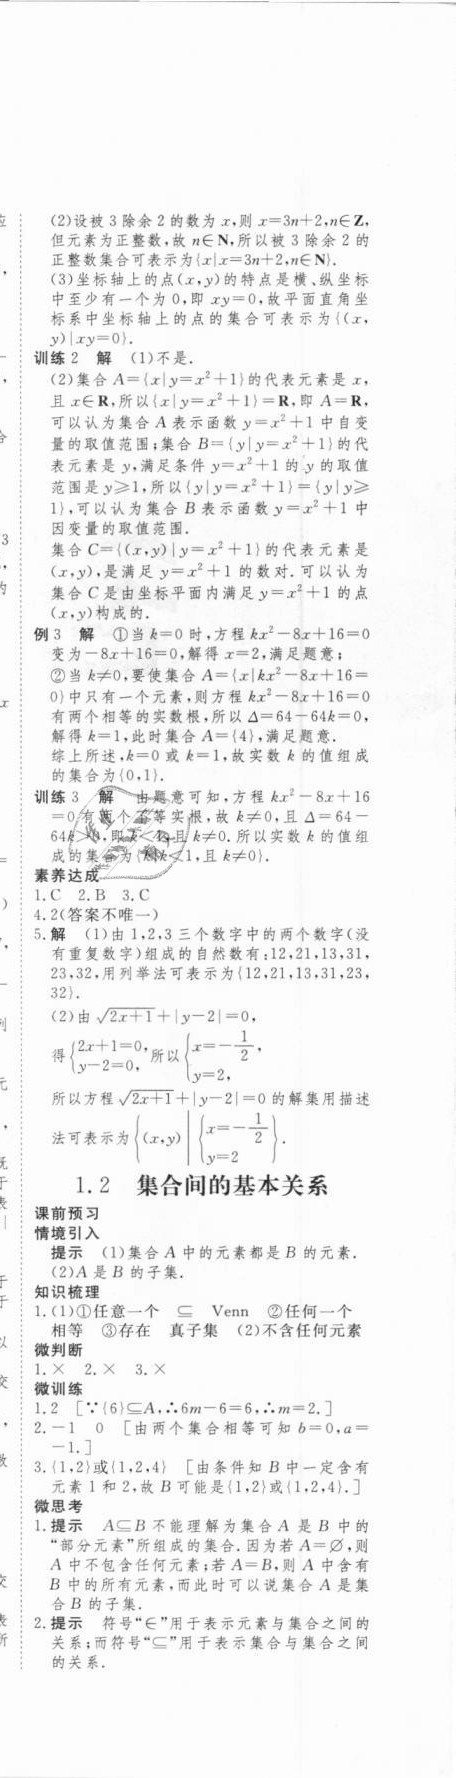 (2)设被 3 除余 2 的数为 x,则 x=3n+2,n∈Z,
但元素为正整数,故 n∈N,所以被 3 除余 2 的
正整数集合可表示为{x|x=3n+2,n∈N}.
(3)坐标轴上的点(x,y)的特点是横、纵坐标
中至少有一个为 0,即 xy=0,故平面直角坐
标系中坐标轴上的点的集合可表示为{(x,
y)|xy=0}.
训练 2 解 (1)不是.
(2)集合 A={x|y=x²+1}的代表元素是 x,
且 x∈R,所以{x|y=x²+1}=R,即 A=R,
可以认为集合 A 表示函数 y=x²+1 中自变
量的取值范围;集合 B={y|y=x²+1}的代
表元素是 y,满足条件 y=x²+1 的 y 的取值
范围是 y≥1,所以{y|y=x²+1}={y|y≥
1},可以认为集合 B 表示函数 y=x²+1 中
因变量的取值范围.
集合 C={(x,y)|y=x²+1}的代表元素是
(x,y),是满足 y=x²+1 的数对.可以认为
集合 C 是由坐标平面内满足 y=x²+1 的点
(x,y)构成的.
例 3 解 ①当 k=0 时,方程 kx²-8x+16=0
变为-8x+16=0,解得 x=2,满足题意;
②当 k≠0,要使集合 A={x|kx²-8x+16=
0}中只有一个元素,则方程 kx²-8x+16=0
有两个相等的实数根,所以 Δ=64-64k=0,
解得 k=1,此时集合 A={4},满足题意.
综上所述,k=0 或 k=1,故实数 k 的值组成
的集合为{0,1}.
训练 3 解 由题意可知,方程 kx²-8x+16
=0 有两个不等实根,故 k≠0,且 Δ=64-
64k>0,即 k<1,且 k≠0.所以实数 k 的值组
成的集合为{k|k<1,且 k≠0}.
素养达成
1.C 2.B 3.C
4.2(答案不唯一)
5.解 (1)由 1,2,3 三个数字中的两个数字(没
有重复数字)组成的自然数有:12,21,13,31,
23,32,用列举法可表示为{12,21,13,31,23,
32}.
(2)由 √(2x+1)+|y-2|=0,
得{2x+1=0, y-2=0, 所以{x=-1/2, y=2,
所以方程 √(2x+1)+|y-2|=0 的解集用描述
法可表示为{(x,y)|{x=-1/2 y=2}.
1.2 集合间的基本关系
课前预习
情境引入
提示 (1)集合 A 中的元素都是 B 的元素.
(2)A 是 B 的子集.
知识梳理
1.(1)①任意一个 ⊆ Venn ②任何一个
相等 ③存在 真子集 (2)不含任何元素
微判断
1.× 2.× 3.×
微训练
1.2 [∵{6}⊆A,∴6m-6=6,∴m=2.]
2.-1 0 [由两个集合相等可知 b=0,a=
-1.]
3.{1,2}或{1,2,4} [由条件知 B 中一定含有
元素 1 和 2,故 B 可能是{1,2}或{1,2,4}.]
微思考
1.提示 A⊆B 不能理解为集合 A 是 B 中的
“部分元素”所组成的集合.因为若 A=∅,则
A 中不包含任何元素;若 A=B,则 A 中含有
B 中的所有元素,而此时可以说集合 A 是集
合 B 的子集.
2.提示 符号“∈”用于表示元素与集合之间的
关系;而符号“⊆”用于表示集合与集合之间
的关系.